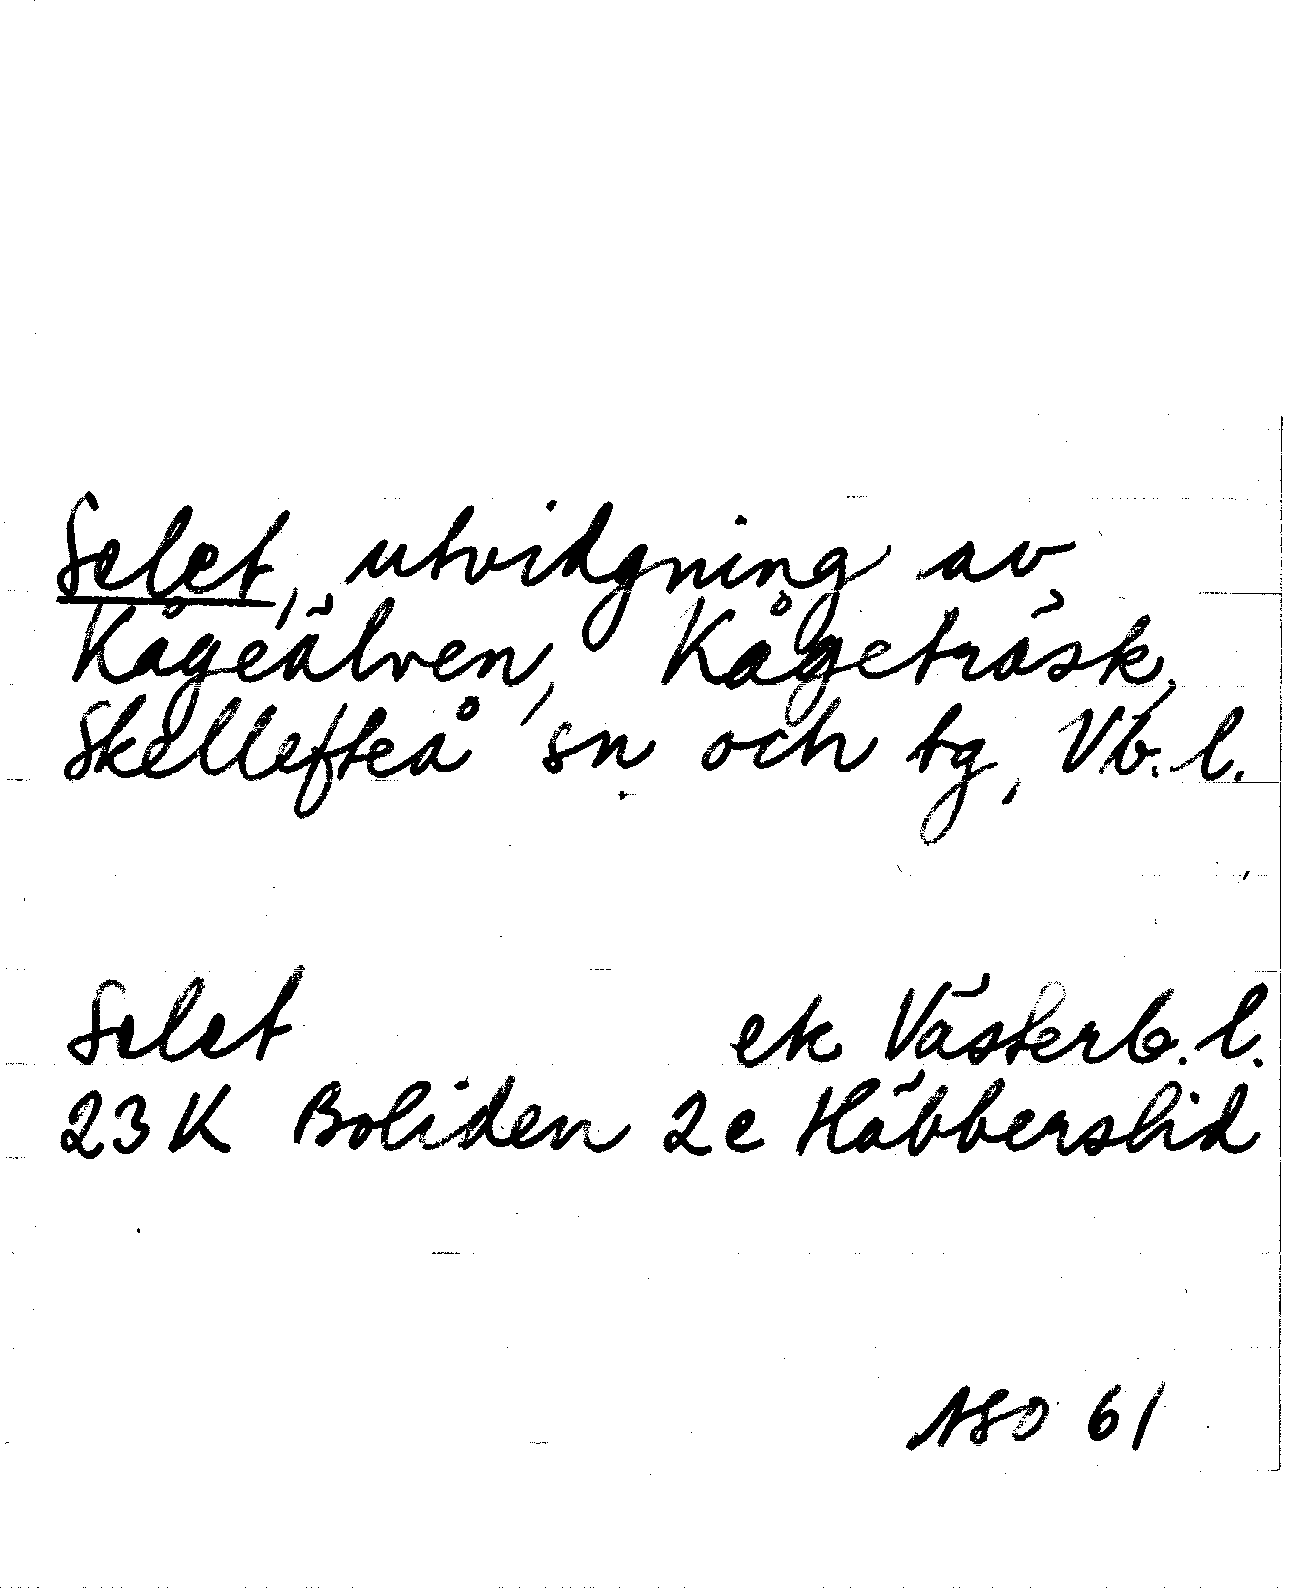 Selet, utvidgning av
Kågeälven, Kågeträsk,
Skellefteå sn och tg, Vb. l.
Selet ek Västerb. l.
23 K Boliden 2 c Häbberslid
ASO 61